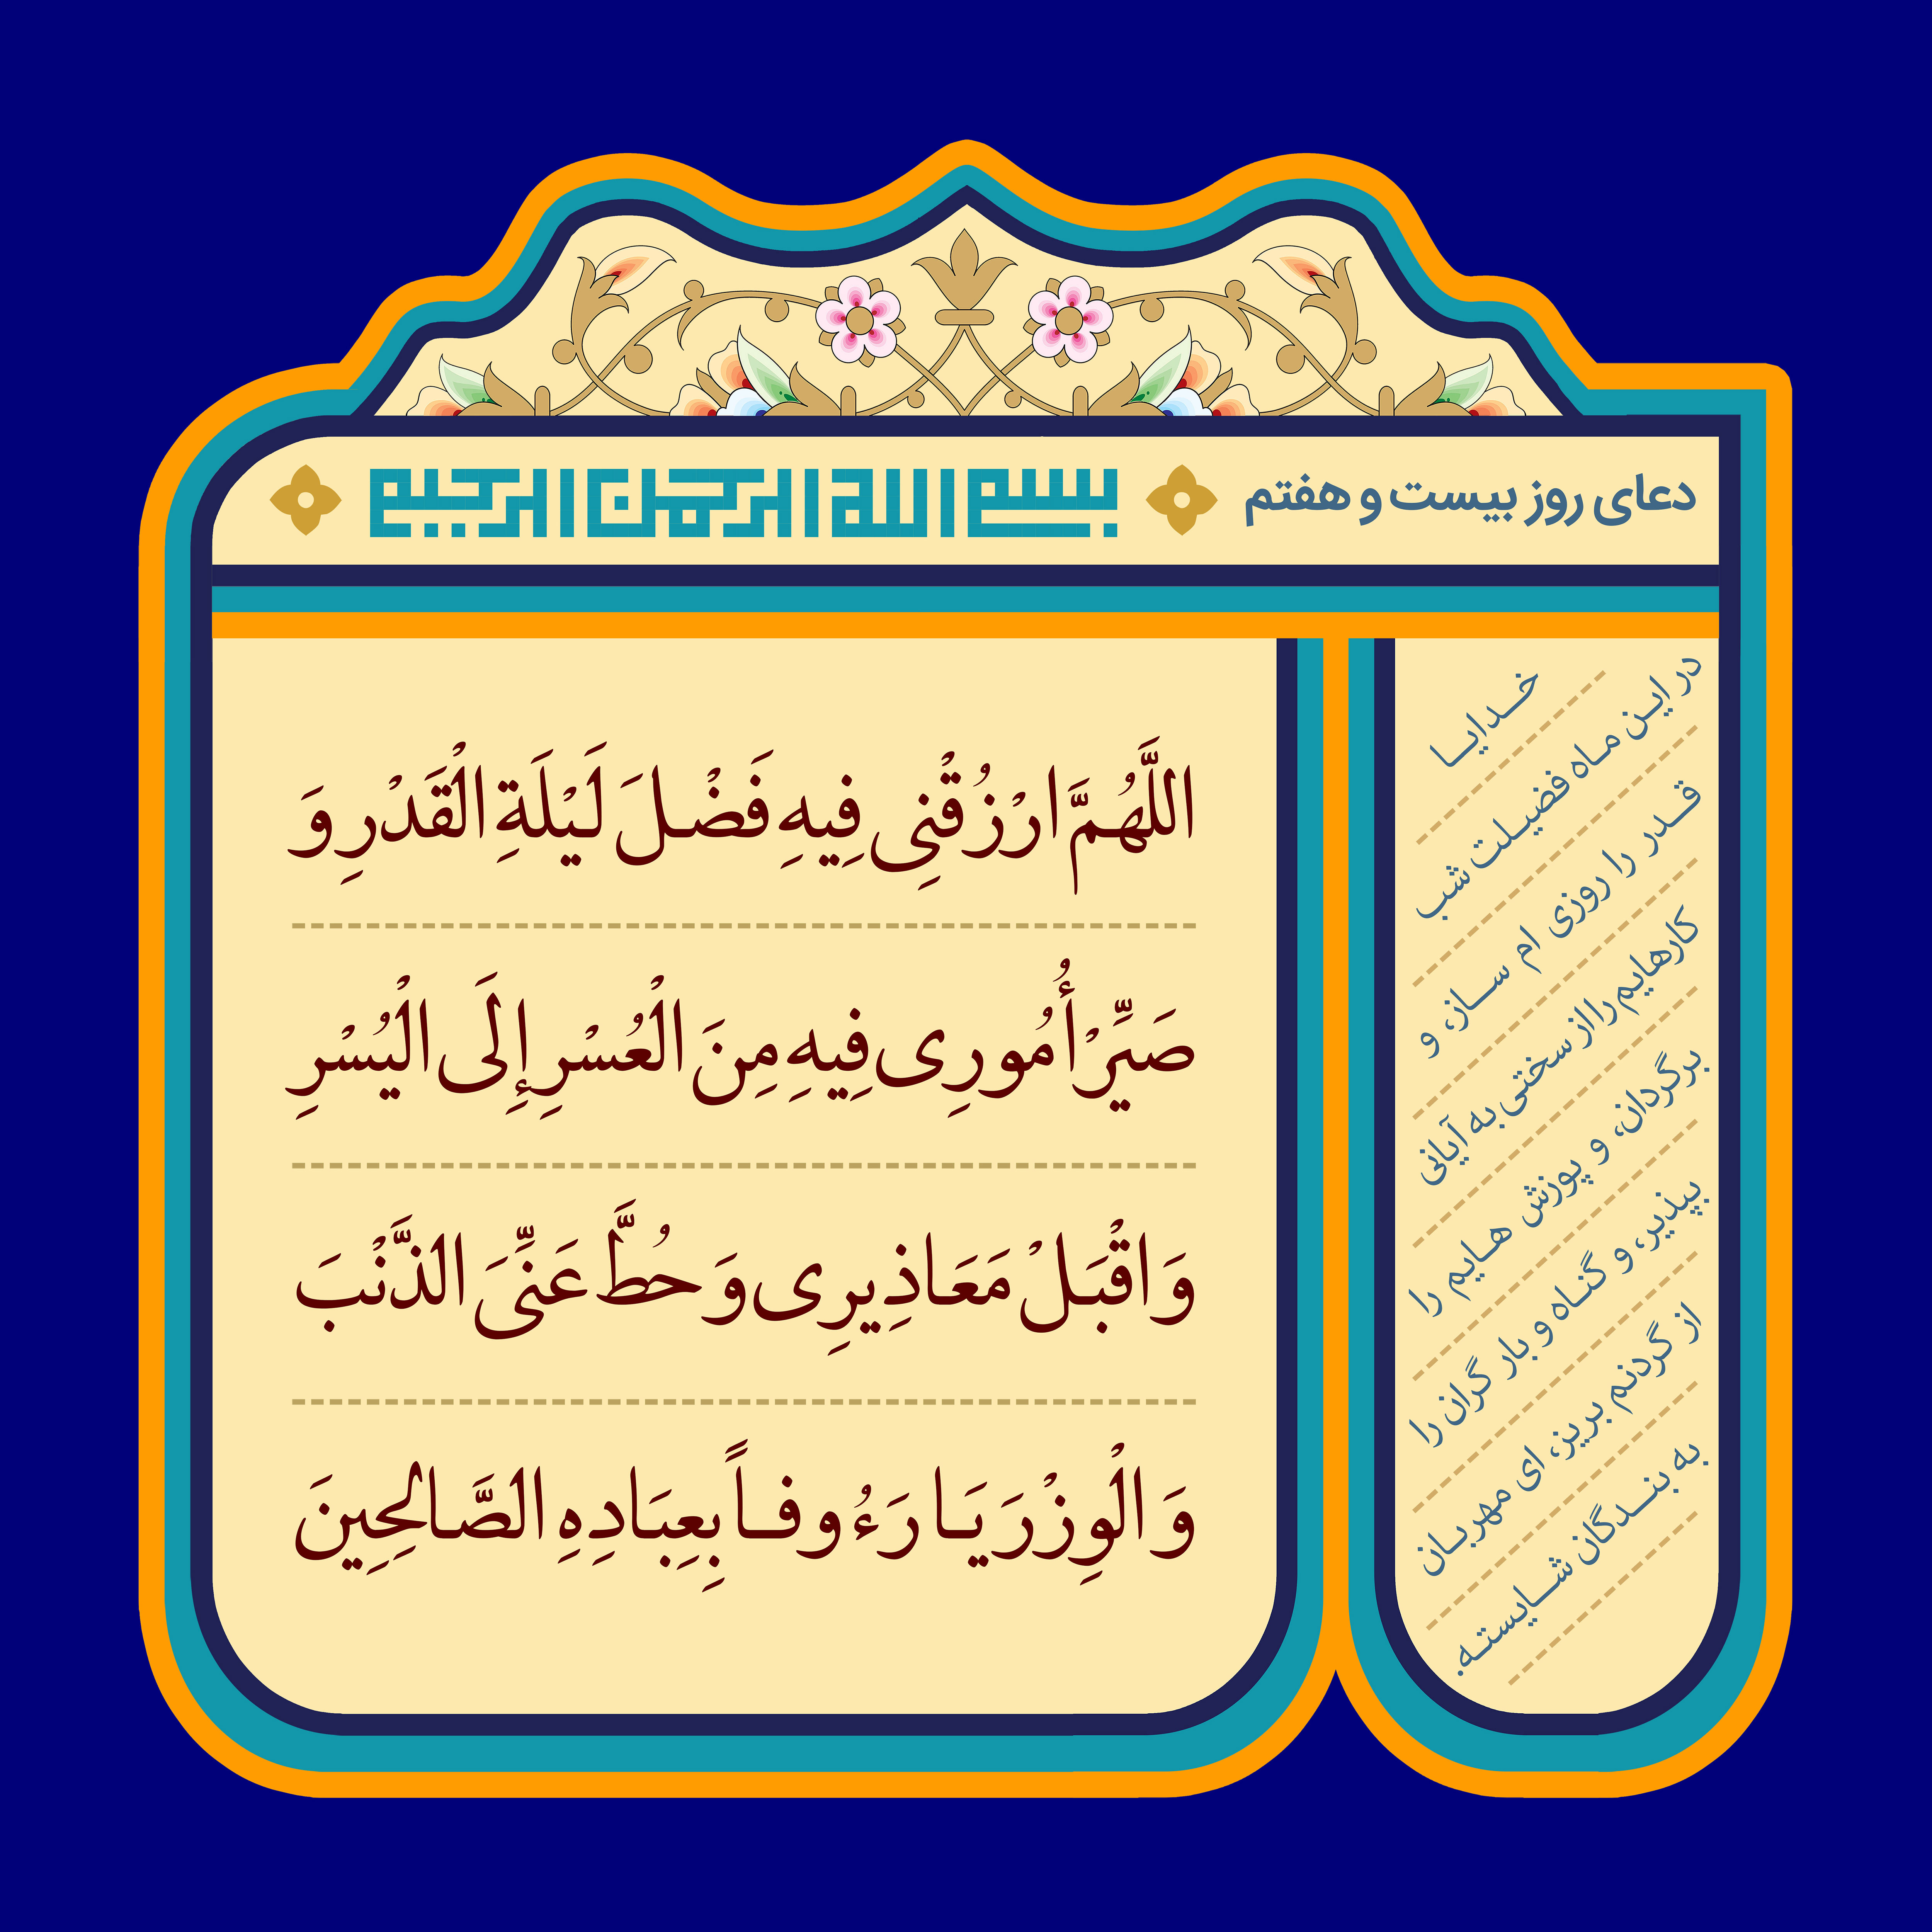 دعای روز بیست و هفتم
بسم الله الرحمن الرحیم
اللَّهُمَّ ارْزُقْنِی فِیهِ فَضْلَ لَیْلَةِ الْقَدْرِ وَ
صَیِّرْ أُمُورِی فِیهِ مِنَ الْعُسْرِ إِلَی الْیُسْرِ
وَ اقْبَلْ مَعَاذِیرِی وَ حُطَّ عَنِّیَ الذَّنْبَ
وَ الْوِزْرَ یَا رَءُوفاً بِعِبَادِهِ الصَّالِحِینَ
خدایا
در این ماه فضیلت شب
قدر را روزی ام ساز، و
کارهایم را از سختی به آیانی
برگردان، و پوزش هایم را
بپذیر، و گناه و بار گران را
از گردنم بریز، ای مهربان
به بندگان شایسته.